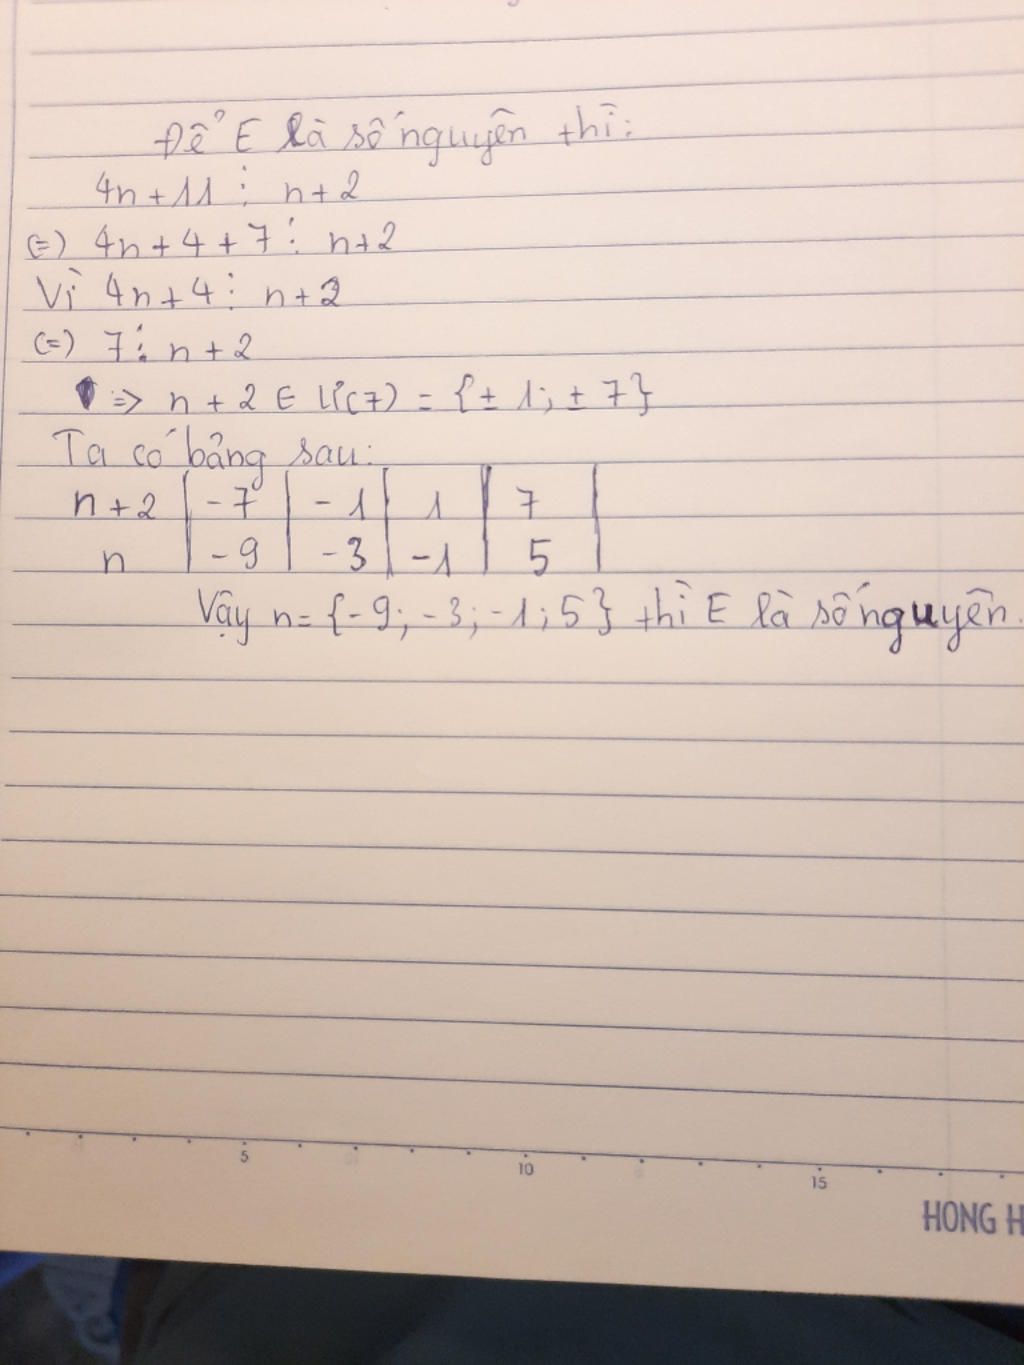 Để E là số nguyên thì:
4n + 11 ⋮ n + 2
(=) 4n + 4 + 7 ⋮ n+2
Vì 4n + 4 ⋮ n + 2
(=) 7 ⋮ n + 2
=> n + 2 ∈ Ư(7) = {± 1; ± 7}
Ta có bảng sau:
n + 2 | - 7 | - 1 | 1 | 7 |
n | - 9 | - 3 | - 1 | 5 |
Vậy n = {- 9; - 3; - 1; 5} thì E là số nguyên.
5 10 15
HONG H